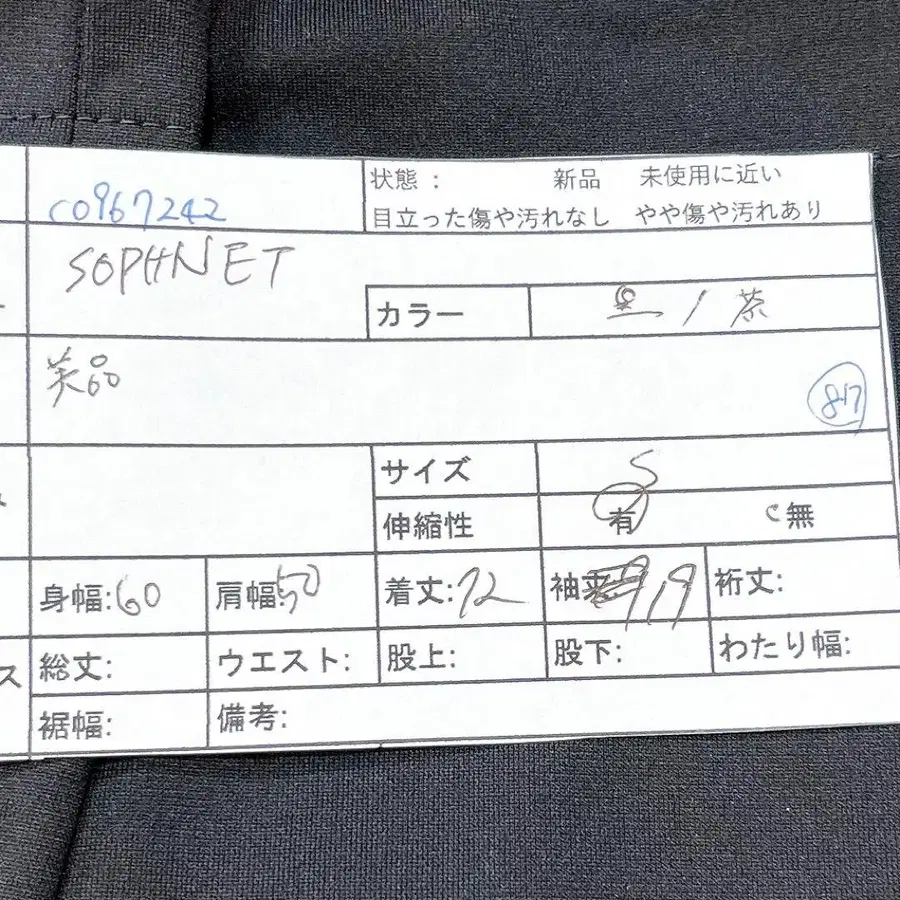 c0967242
状態： 新品 未使用に近い
目立った傷や汚れなし やや傷や汚れあり
SOPHNET
カラー 黒 / 茶
美品
817
サイズ S
伸縮性 有 c無
身幅:60 肩幅:50 着丈:72 袖 19 裄丈:
ス 総丈: ウエスト: 股上: 股下: わたり幅:
裾幅: 備考: